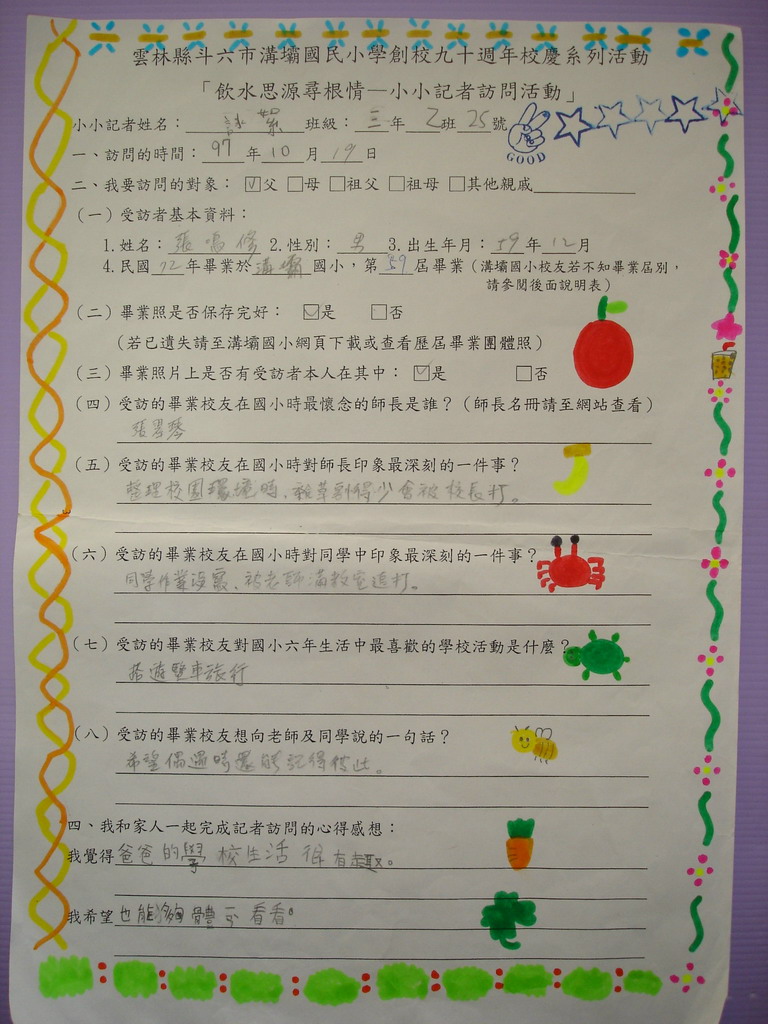 雲林縣斗六市溝壩國民小學創校九十週年校慶系列活動
「飲水思源尋根情—小小記者訪問活動」
小小記者姓名：詠絮 班級：三年乙班25號
GOOD
一、訪問的時間：97年10月19日
二、我要訪問的對象：☑父 □母 □祖父 □祖母 □其他親戚
（一）受訪者基本資料：
1.姓名：張鳴修 2.性別：男 3.出生年月：59年12月
4.民國72年畢業於溝壩國小，第59屆畢業（溝壩國小校友若不知畢業屆別，
請參閱後面說明表）
（二）畢業照是否保存完好：☑是 □否
（若已遺失請至溝壩國小網頁下載或查看歷屆畢業團體照）
（三）畢業照片上是否有受訪者本人在其中：☑是 □否
（四）受訪的畢業校友在國小時最懷念的師長是誰？（師長名冊請至網站查看）
張碧琴
（五）受訪的畢業校友在國小時對師長印象最深刻的一件事？
整理校園環境時、雜草割得少會被校長打。
（六）受訪的畢業校友在國小時對同學中印象最深刻的一件事？
同學作業沒寫、被老師滿教室追打。
（七）受訪的畢業校友對國小六年生活中最喜歡的學校活動是什麼？
搭遊覽車旅行
（八）受訪的畢業校友想向老師及同學說的一句話？
希望偶遇時還能記得彼此。
四、我和家人一起完成記者訪問的心得感想：
我覺得爸爸的學校生活很有趣。
我希望也能夠體會看看。